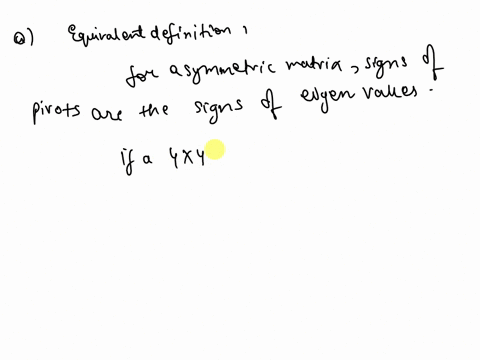 a) Equivalent definition,
for a symmetric matrix, signs of
pivots are the signs of eigen values.
if a 4x4